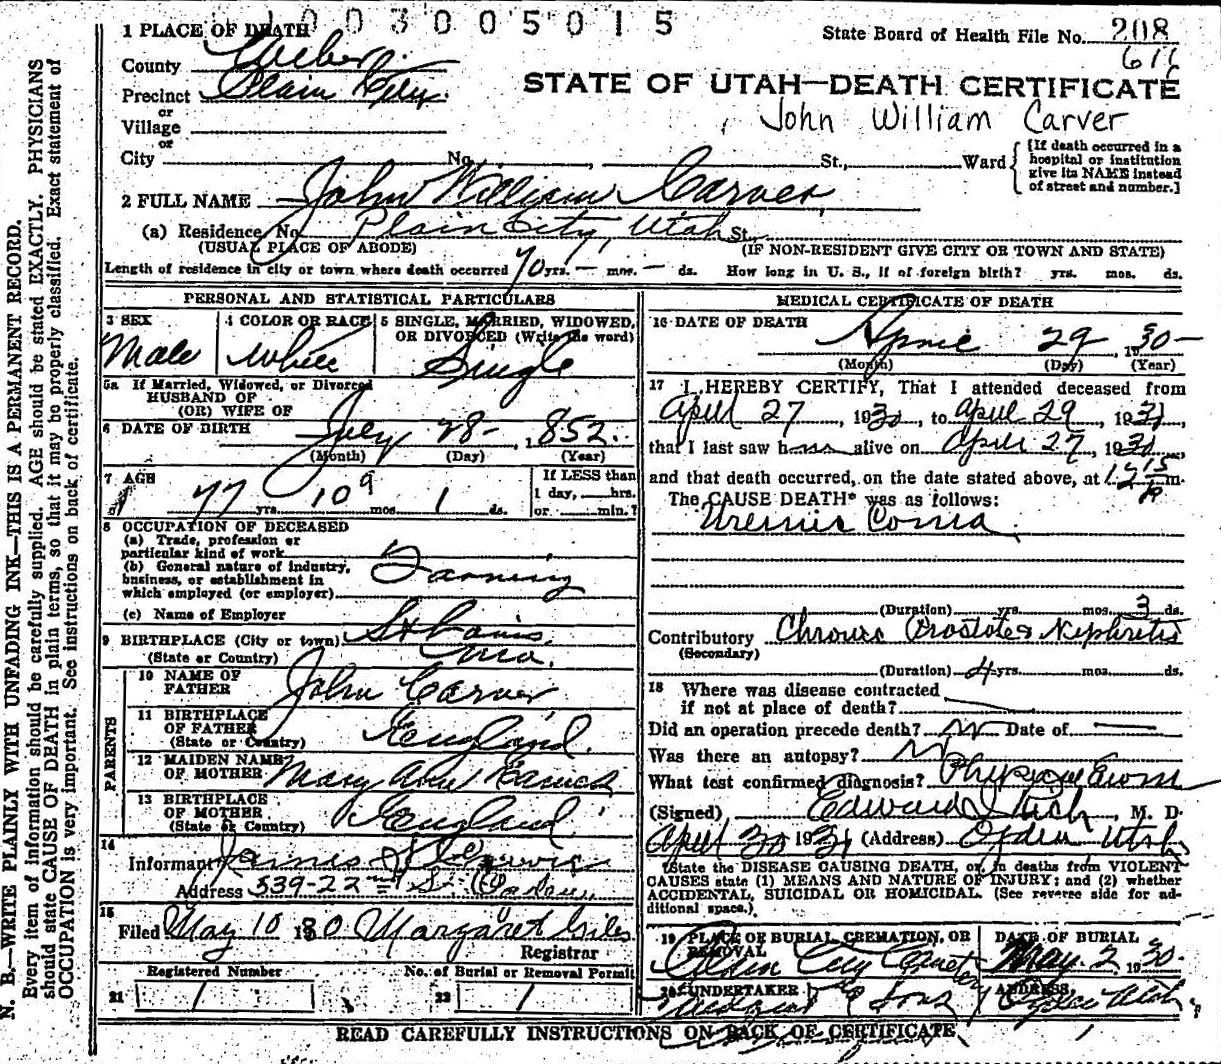 1003005015
State Board of Health File No. 208
611
1 PLACE OF DEATH
County Weber
STATE OF UTAH—DEATH CERTIFICATE
Precinct Plain City
or
Village
John William Carver
or
City No. St., Ward
[If death occurred in a hospital or institution give its NAME instead of street and number.]
2 FULL NAME John William Carver
(a) Residence, No. Plain City, Utah St.
(USUAL PLACE OF ABODE) (IF NON-RESIDENT GIVE CITY OR TOWN AND STATE)
Length of residence in city or town where death occurred 70 yrs. — mos. — ds. How long in U. S., if of foreign birth? yrs. mos. ds.
PERSONAL AND STATISTICAL PARTICULARS
3 SEX Male
4 COLOR OR RACE White
5 SINGLE, MARRIED, WIDOWED, OR DIVORCED (Write the word) Single
5a If Married, Widowed, or Divorced
HUSBAND OF
(OR) WIFE OF
6 DATE OF BIRTH July 28- 1852
(Month) (Day) (Year)
7 AGE 77 yrs. 10 9 mos. 1 ds.
If LESS than
1 day, hrs.
or min.?
8 OCCUPATION OF DECEASED
(a) Trade, profession or
particular kind of work
(b) General nature of industry,
business, or establishment in
which employed (or employer) Farming
(c) Name of Employer
9 BIRTHPLACE (City or town) St Louis
(State or Country) Mo.
PARENTS
10 NAME OF FATHER John Carver
11 BIRTHPLACE OF FATHER England
(State or Country)
12 MAIDEN NAME OF MOTHER Mary Ann
13 BIRTHPLACE OF MOTHER England
(State or Country)
14
Informant James
Address 539-22nd St. Ogden
15
Filed May 10 1930 Margaret Giles
Registrar
Registered Number No. of Burial or Removal Permit
21 1 22 1
MEDICAL CERTIFICATE OF DEATH
16 DATE OF DEATH
April 29, 1930-
(Month) (Day) (Year)
17 I HEREBY CERTIFY, That I attended deceased from
April 27, 1930, to April 29, 1930,
that I last saw h alive on April 27, 1930,
and that death occurred, on the date stated above, at 12 15 P m.
The CAUSE DEATH* was as follows:
Uremic Coma
(Duration) yrs. mos. 3 ds.
Contributory Chronic Prostate & Nephritis
(Secondary)
(Duration) 4 yrs. mos. ds.
18 Where was disease contracted
if not at place of death?
Did an operation precede death? No Date of —
Was there an autopsy? No
What test confirmed diagnosis? Physical Exam
(Signed) Edward Rich, M. D.
April 30 1930 (Address) Ogden Utah
*State the DISEASE CAUSING DEATH, or, in deaths from VIOLENT
CAUSES state (1) MEANS AND NATURE OF INJURY; and (2) whether
ACCIDENTAL, SUICIDAL OR HOMICIDAL. (See reverse side for additional space.)
19 PLACE OF BURIAL, CREMATION, OR REMOVAL Ogden City Cemetery
DATE OF BURIAL May. 2 1930-
20 UNDERTAKER & Sons
ADDRESS Ogden Utah
READ CAREFULLY INSTRUCTIONS ON BACK OF CERTIFICATE
N. B.—WRITE PLAINLY WITH UNFADING INK—THIS IS A PERMANENT RECORD.
Every item of information should be carefully supplied. AGE should be stated EXACTLY. PHYSICIANS
should state CAUSE OF DEATH in plain terms, so that it may be properly classified. Exact statement of
OCCUPATION is very important. See instructions on back of certificate.